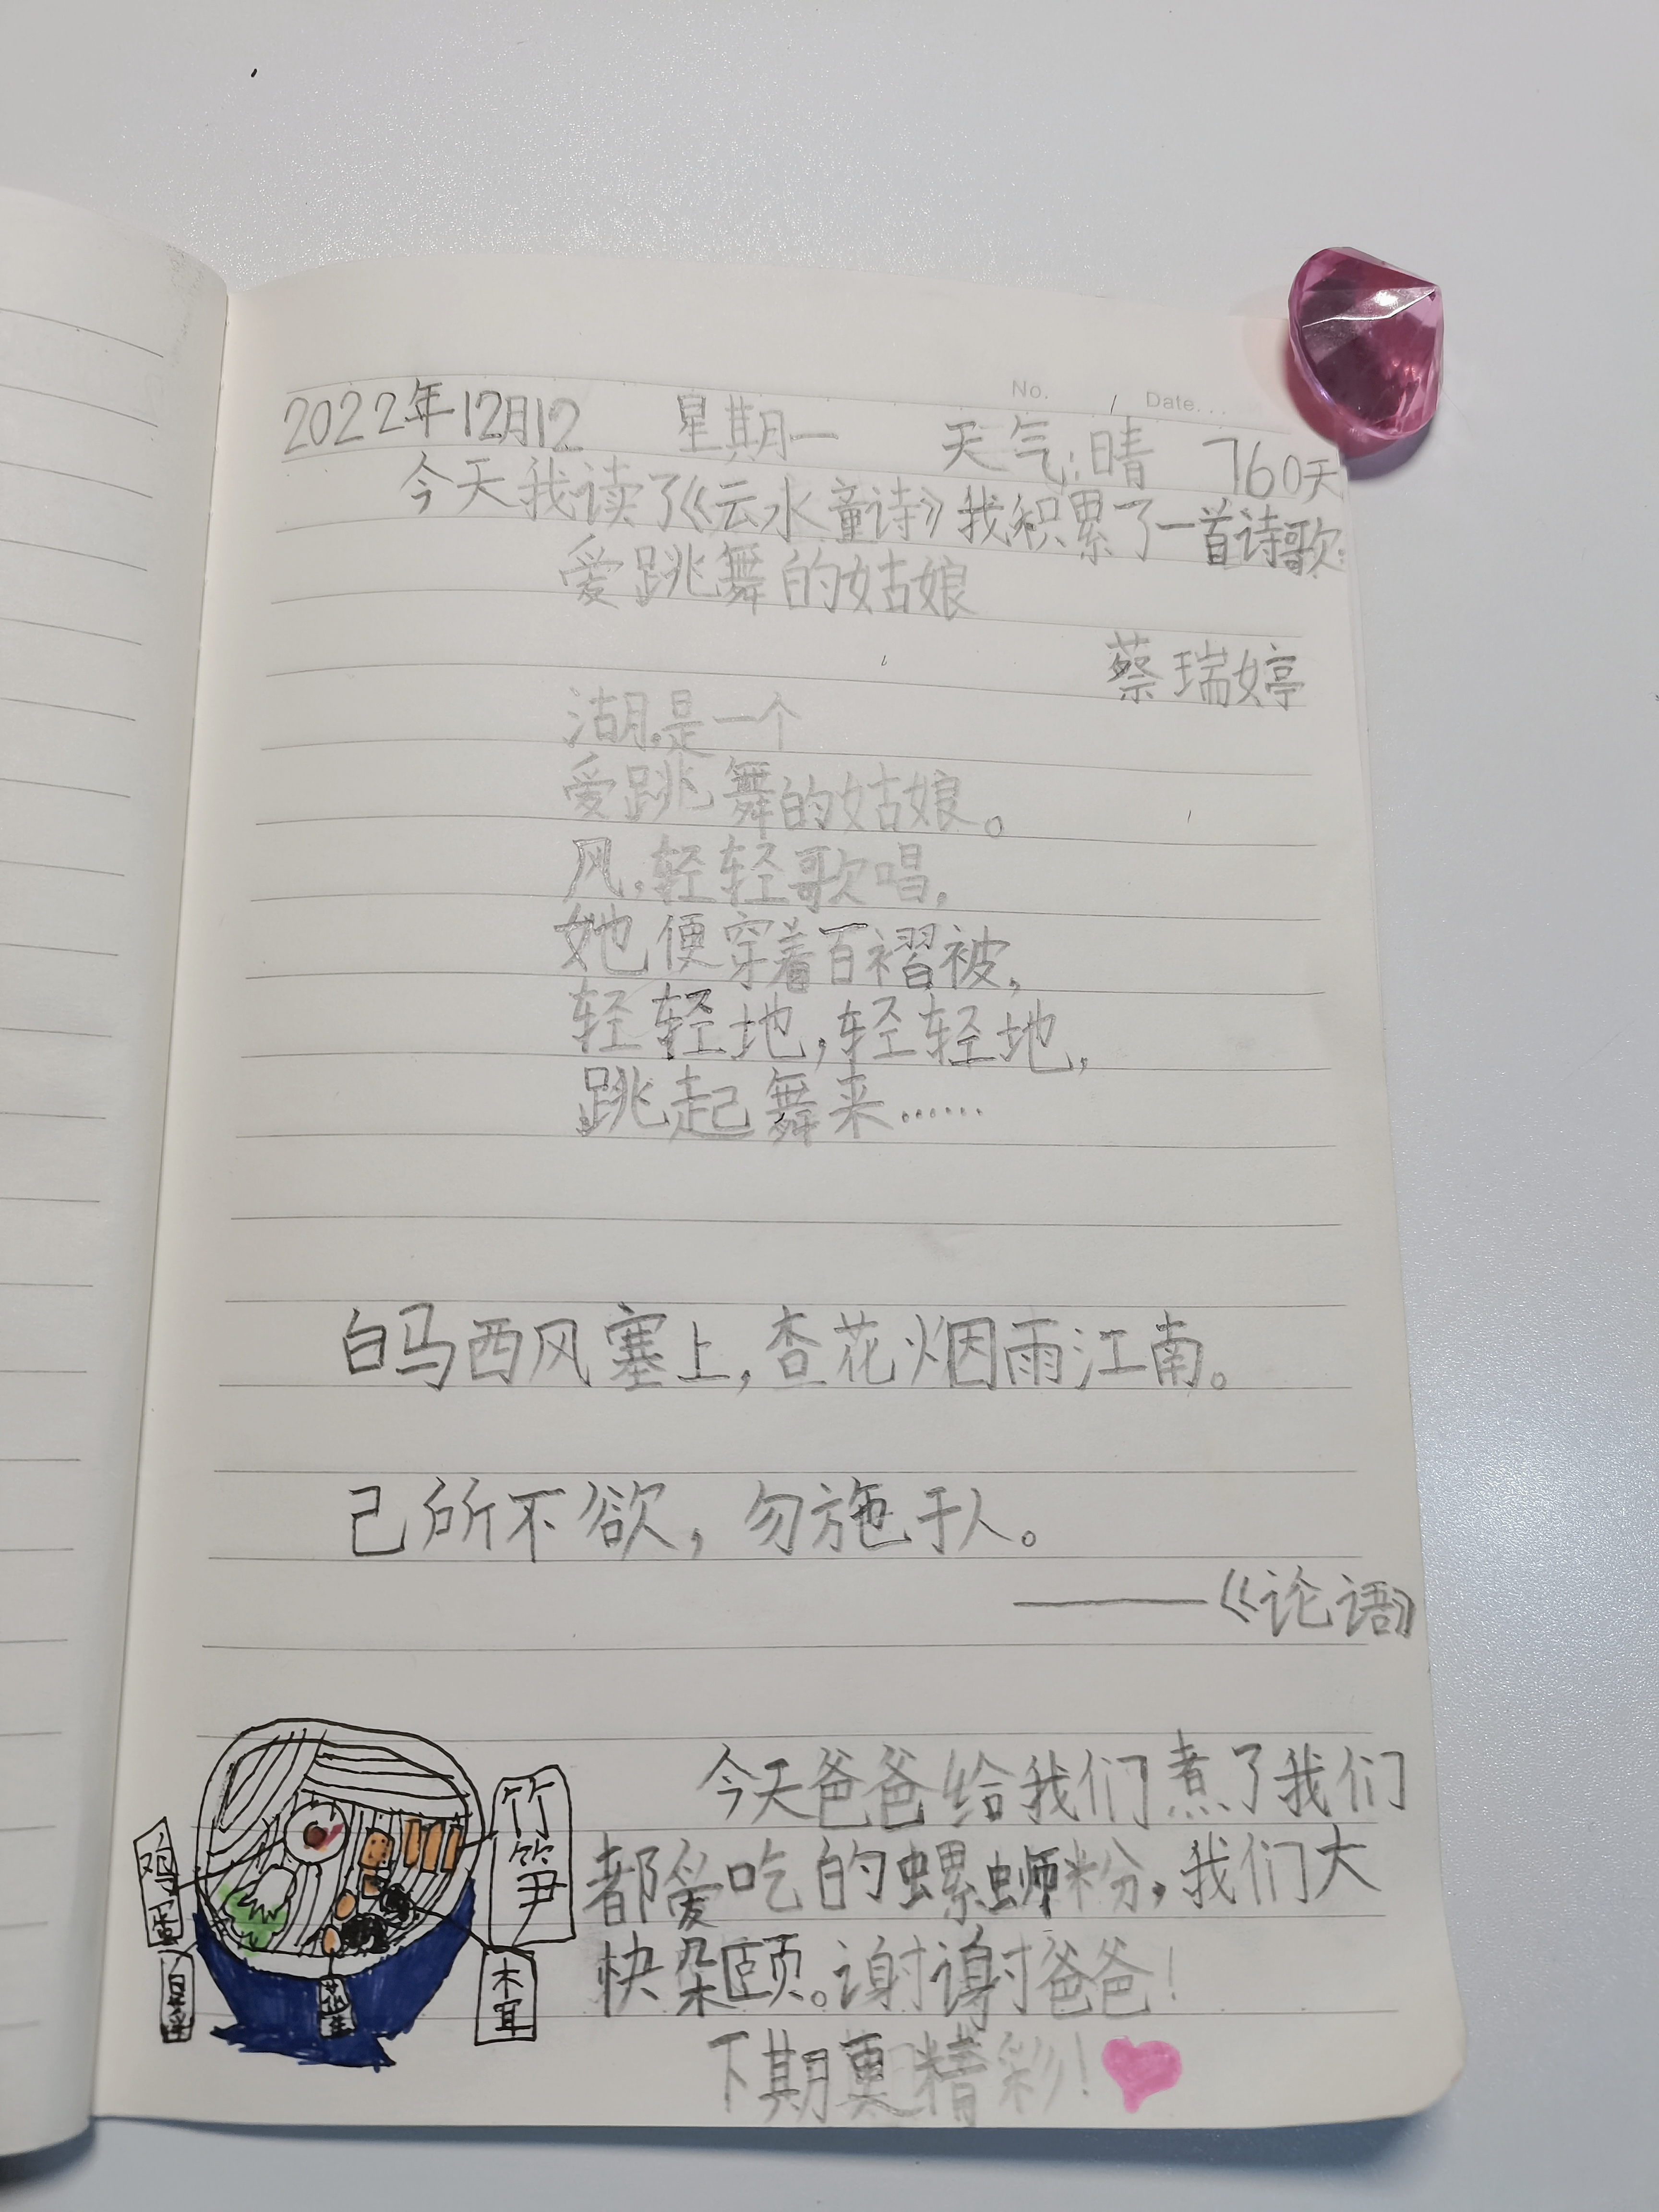 No.
Date...
2022年12月12 星期一 天气:晴 760天
今天我读了《云水童诗》我积累了一首诗歌:
爱跳舞的姑娘
蔡瑞婷
湖,是一个
爱跳舞的姑娘。
风,轻轻歌唱,
她便穿着百褶被,
轻轻地,轻轻地,
跳起舞来……
白马西风塞上,杏花烟雨江南。
己所不欲,勿施于人。
——《论语》
今天爸爸给我们煮了我们
都爱吃的螺蛳粉,我们大
快朵颐。谢谢爸爸!
下期更精彩!
鸡蛋
白菜
花生
竹笋
木耳